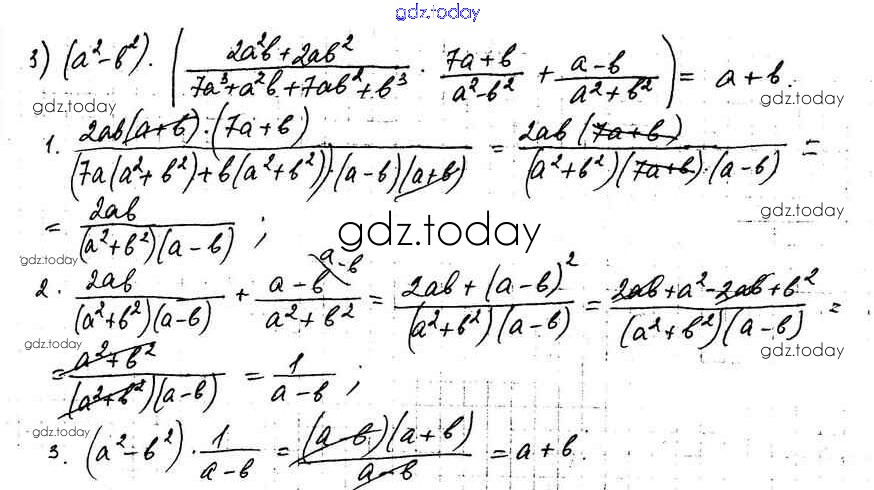 gdz.today
3) (a²-b²)·((2a²b+2ab²)/(7a³+a²b+7ab²+b³) · (7a+b)/(a²-b²) + (a-b)/(a²+b²)) = a+b.
gdz.today gdz.today
1. (2ab(a+b)·(7a+b))/((7a(a²+b²)+b(a²+b²))·(a-b)(a+b)) = (2ab(7a+b))/((a²+b²)(7a+b)·(a-b)) =
= 2ab/((a²+b²)(a-b)) ;
gdz.today gdz.today gdz.today
2. 2ab/((a²+b²)(a-b)) + (a-b)/(a²+b²) \a-b = (2ab+(a-b)²)/((a²+b²)(a-b)) = (2ab+a²-2ab+b²)/((a²+b²)(a-b)) =
gdz.today gdz.today
= (a²+b²)/((a²+b²)(a-b)) = 1/(a-b) ;
gdz.today
3. (a²-b²)·1/(a-b) = ((a-b)(a+b))/(a-b) = a+b.
gdz.today